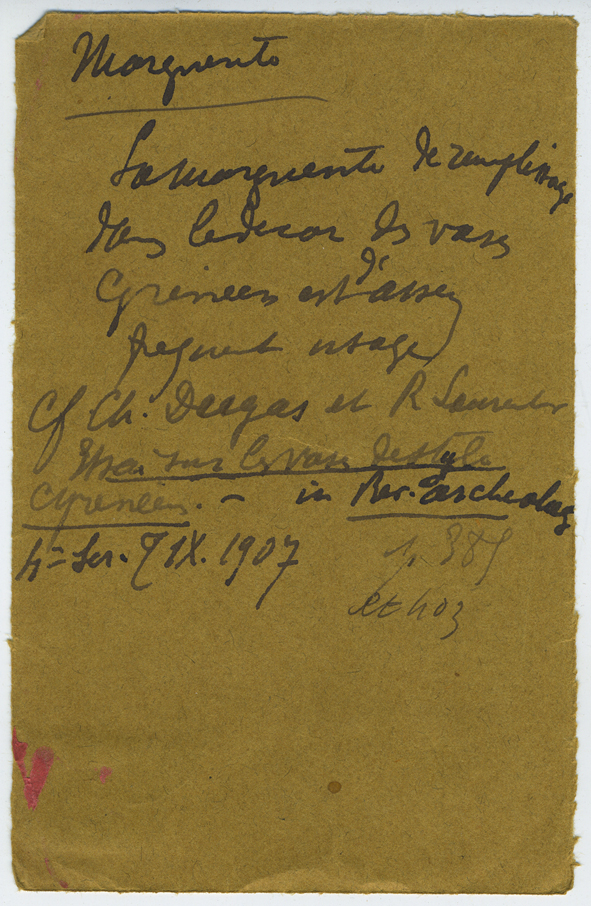 Marguerite
La marguerite de remplissage
dans le decor des vases
Cyréneens est d'assez
frequent usage
Cf Ch. Dugas et R Laurent
Essai sur les vases de style
Cyrénéen. – in Rev. archeolog
4= Ser. T IX. 1907 p 385
et 403